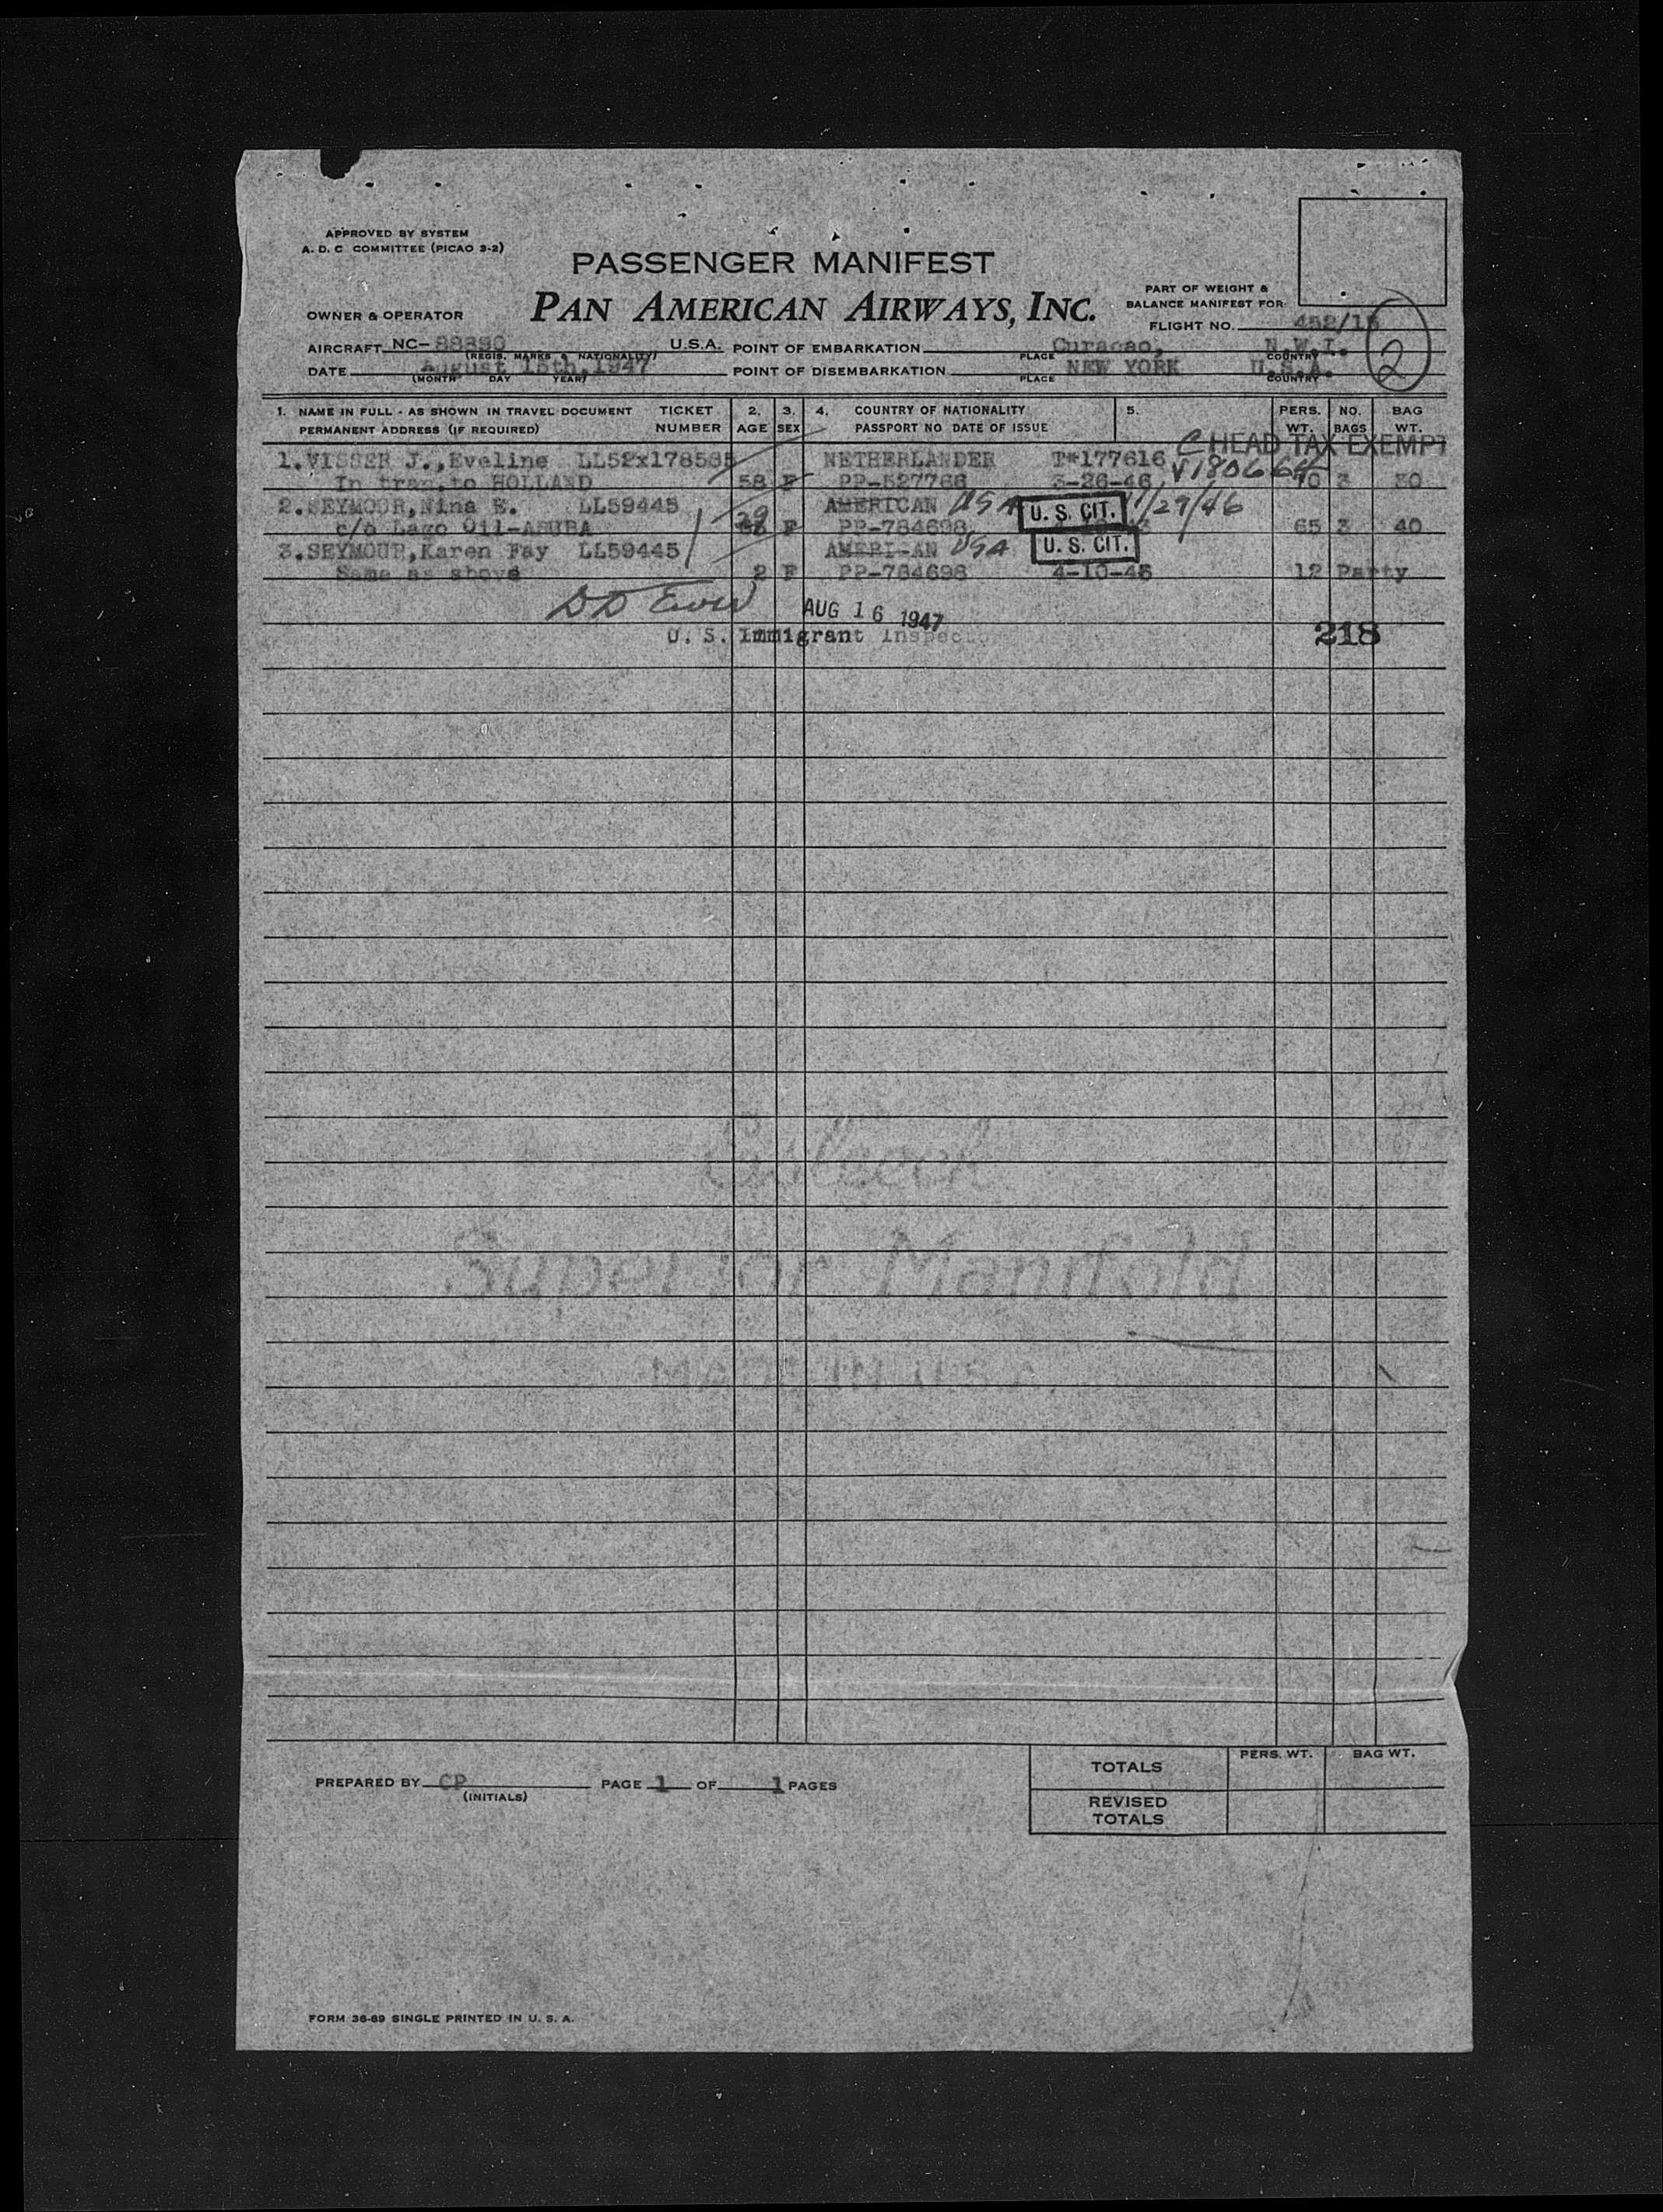 APPROVED BY SYSTEM
A. D. C COMMITTEE (PICAO 3-2)
PASSENGER MANIFEST
PAN AMERICAN AIRWAYS, INC.
OWNER & OPERATOR
PART OF WEIGHT &
BALANCE MANIFEST FOR
FLIGHT NO. 452/15
2
AIRCRAFT NC- 88890 U.S.A. POINT OF EMBARKATION Curacao, N.W.I.
(REGIS. MARKS & NATIONALITY) PLACE COUNTRY
DATE August 15th,1947 POINT OF DISEMBARKATION NEW YORK U.S.A.
(MONTH DAY YEAR) PLACE COUNTRY
1. NAME IN FULL - AS SHOWN IN TRAVEL DOCUMENT TICKET 2. 3. 4. COUNTRY OF NATIONALITY 5. PERS. NO. BAG
PERMANENT ADDRESS (IF REQUIRED) NUMBER AGE SEX PASSPORT NO DATE OF ISSUE WT. BAGS WT.
C HEAD TAX EXEMPT
1. VISSER J.,Eveline LL52x178585 NETHERLANDER T*177616 V180664
In tran.to HOLLAND 58 F PP-527766 3-26-46 3 30
2. SEYMOUR,Nina E. LL59445 AMERICAN USA U. S. CIT. 11/29/46
c/o Lago Oil-ARUBA 29 F PP-784698 65 3 40
3. SEYMOUR,Karen Fay LL59445 AMERI-AN USA U. S. CIT.
Same as above 2 F PP-784698 4-10-46 12 Party
AUG 16 1947
U. S. Immigrant Inspector
218
Superior Manifold
Made in U.S.A.
PREPARED BY CP PAGE 1 OF 1 PAGES
(INITIALS)
PERS. WT. BAG WT.
TOTALS
REVISED
TOTALS
FORM 36-69 SINGLE PRINTED IN U. S. A.